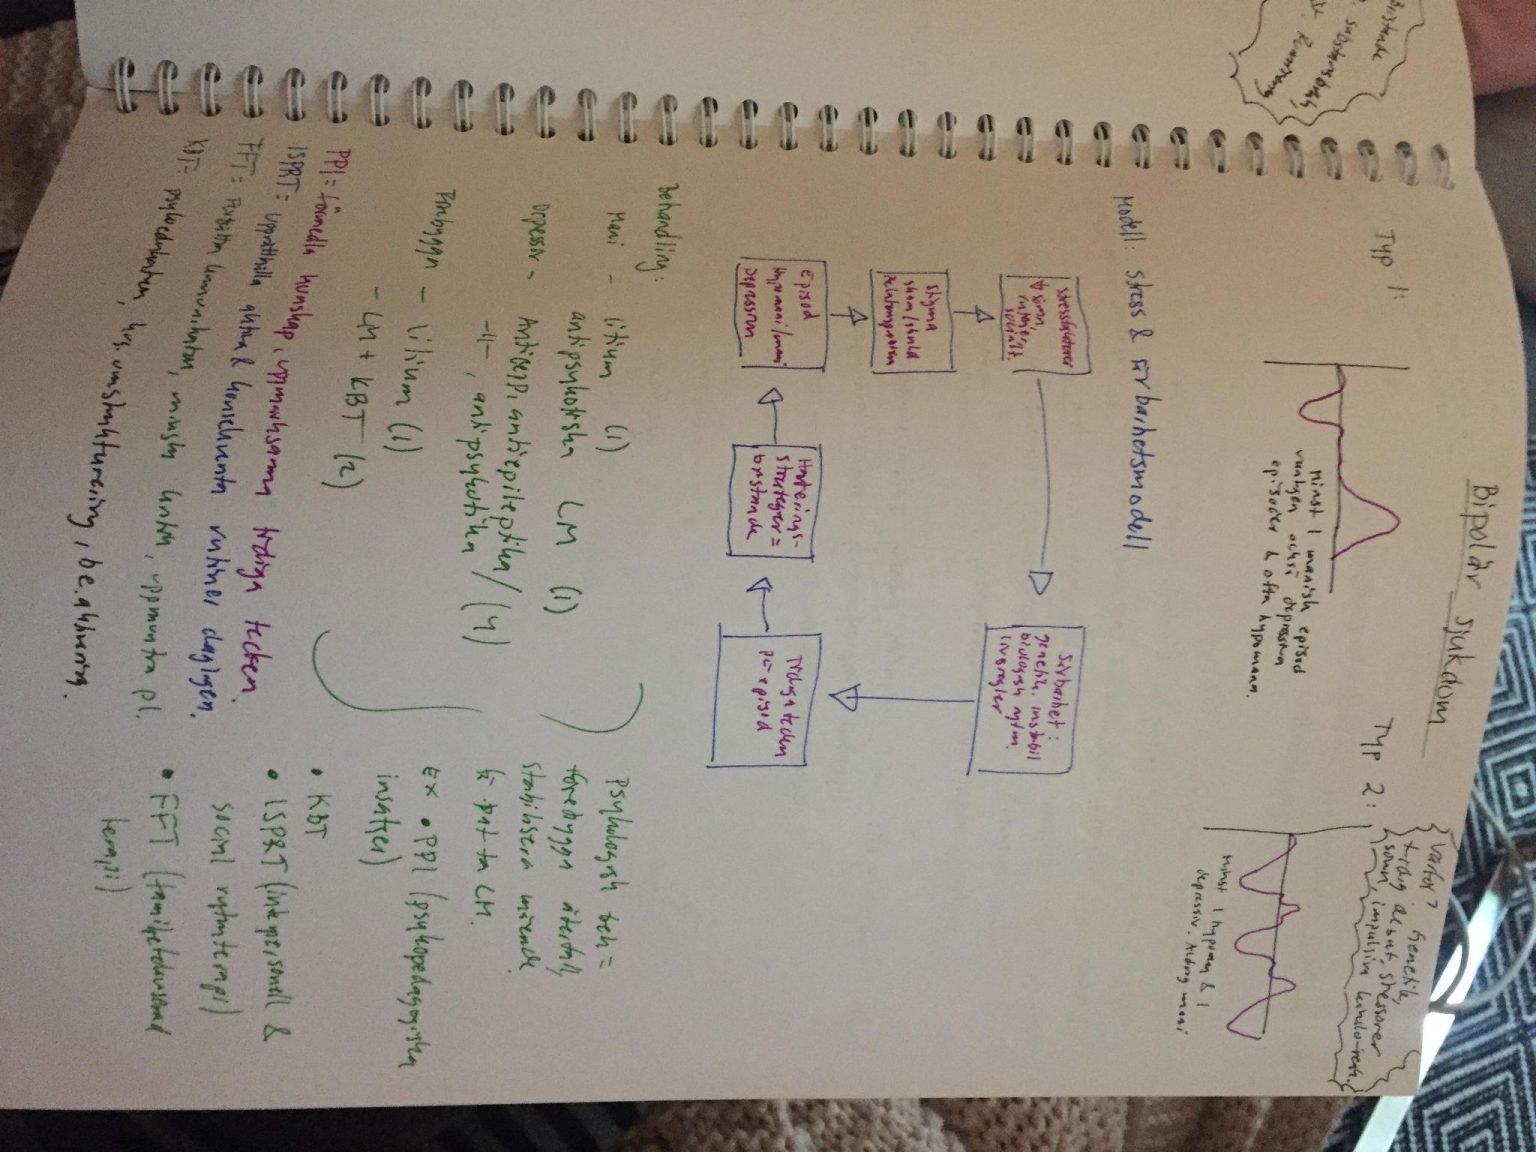 Bipolär sjukdom
Typ 1:
Minst 1 manisk episod
vanligen också depressiva
episoder & ofta hypomana.
Typ 2:
Varför? Genetik,
tidig debut, stressorer
sömn, impulsiv
Minst 1 hypoman & 1
depressiv. Aldrig mani
Modell: Stress & sårbarhetsmodell
Stressfaktorer
sömn,
socialt.
Sårbarhet:
genetik, instabil
biologisk rytm.
livsregler
Stigma
skam/skuld
relationsproblem
Episod
Hypomani/mani
Depression
Hanterings-
strategier =
bristande
Tidiga tecken
på episod
Behandling:
Mani - litium (1)
antipsykotiska LM (1)
Depressiv - Antidepp, antiepileptika /
-11-, antipsykotika (4)
Förebygga - Litium (1)
- LM + KBT (2)
Psykologisk beh =
förebygga återfall,
stabilisera mående
få pat ta LM.
Ex • PPI (psykopedagogiska
insatser)
• KBT
• ISPRT (interpersonell &
social rytmterapi)
• FFT (familjefokuserad
terapi)
PPI = förmedla kunskap, uppmärksamma tidiga tecken.
ISPRT = upprätthålla aktiva & konsekventa rutiner dagligen.
FFT = Förbättra kommunikation, minska kritik, uppmuntra pt.
KBT = psykoedukation, kg. omstrukturering, be. aktivering.